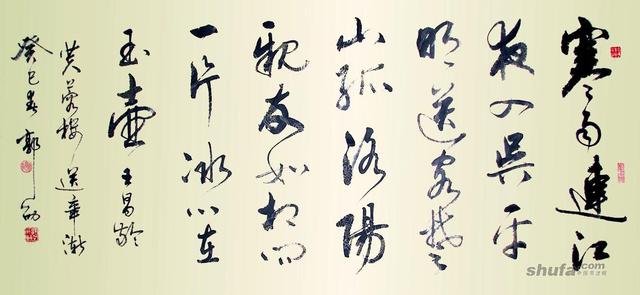 寒雨連江
夜入吳平
明送客楚
山孤洛陽
親友如相問
一片冰心在
玉壺 王昌齡
芙蓉樓送辛漸
癸巳春 郭
shufa.com